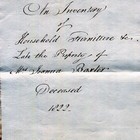 An Inventory
of
Household Furniture &c.
Late the Property of
Mrs Joanna Baxter
Deceased
1822.